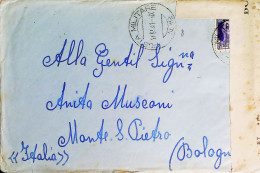 MILITARE
Alla Gentil Sig.na
Anita Musconi
Monte S. Pietro
<<Italia>> (Bologn